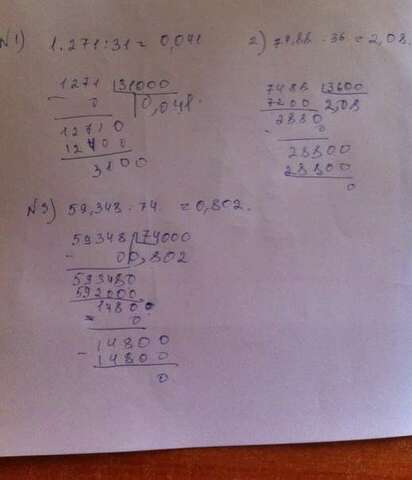 N1) 1.271:31= 0,041
1271 31000
- 0 0,041.
12710
12400
3100
2) 74.88 : 36 = 2,08.
7488 3600
7200 2,08
2880
- 0
28800
28800
0
N3) 59,348 : 74. = 0,802.
59348 74000
- 0 0,802
593480
592000
14800
- 0
- 14800
14800
0